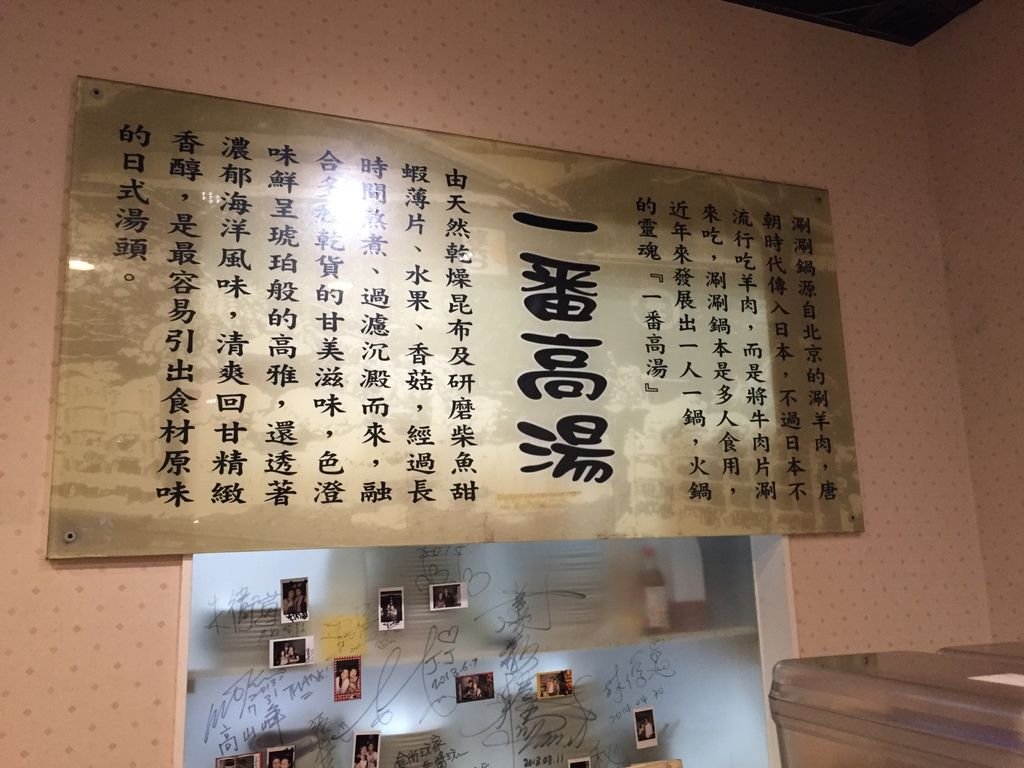 涮涮鍋源自北京的涮羊肉，唐
朝時代傳入日本，不過日本不
流行吃羊肉，而是將牛肉片涮
來吃，涮涮鍋本是多人食用，
近年來發展出一人一鍋，火鍋
的靈魂『一番高湯』
一番高湯
由天然乾燥昆布及研磨柴魚甜
蝦薄片、水果、香菇，經過長
時間熬煮、過濾沉澱而來，融
合多種乾貨的甘美滋味，色澄
味鮮呈琥珀般的高雅，還透著
濃郁海洋風味，清爽回甘精緻
香醇，是最容易引出食材原味
的日式湯頭。
2015
2013.6.7
THANK
7.31
高山峰
2014.04.20
2013.08.11
食尚玩家